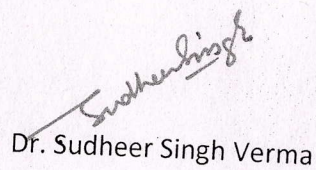 Sudheer Singh
Dr. Sudheer Singh Verma